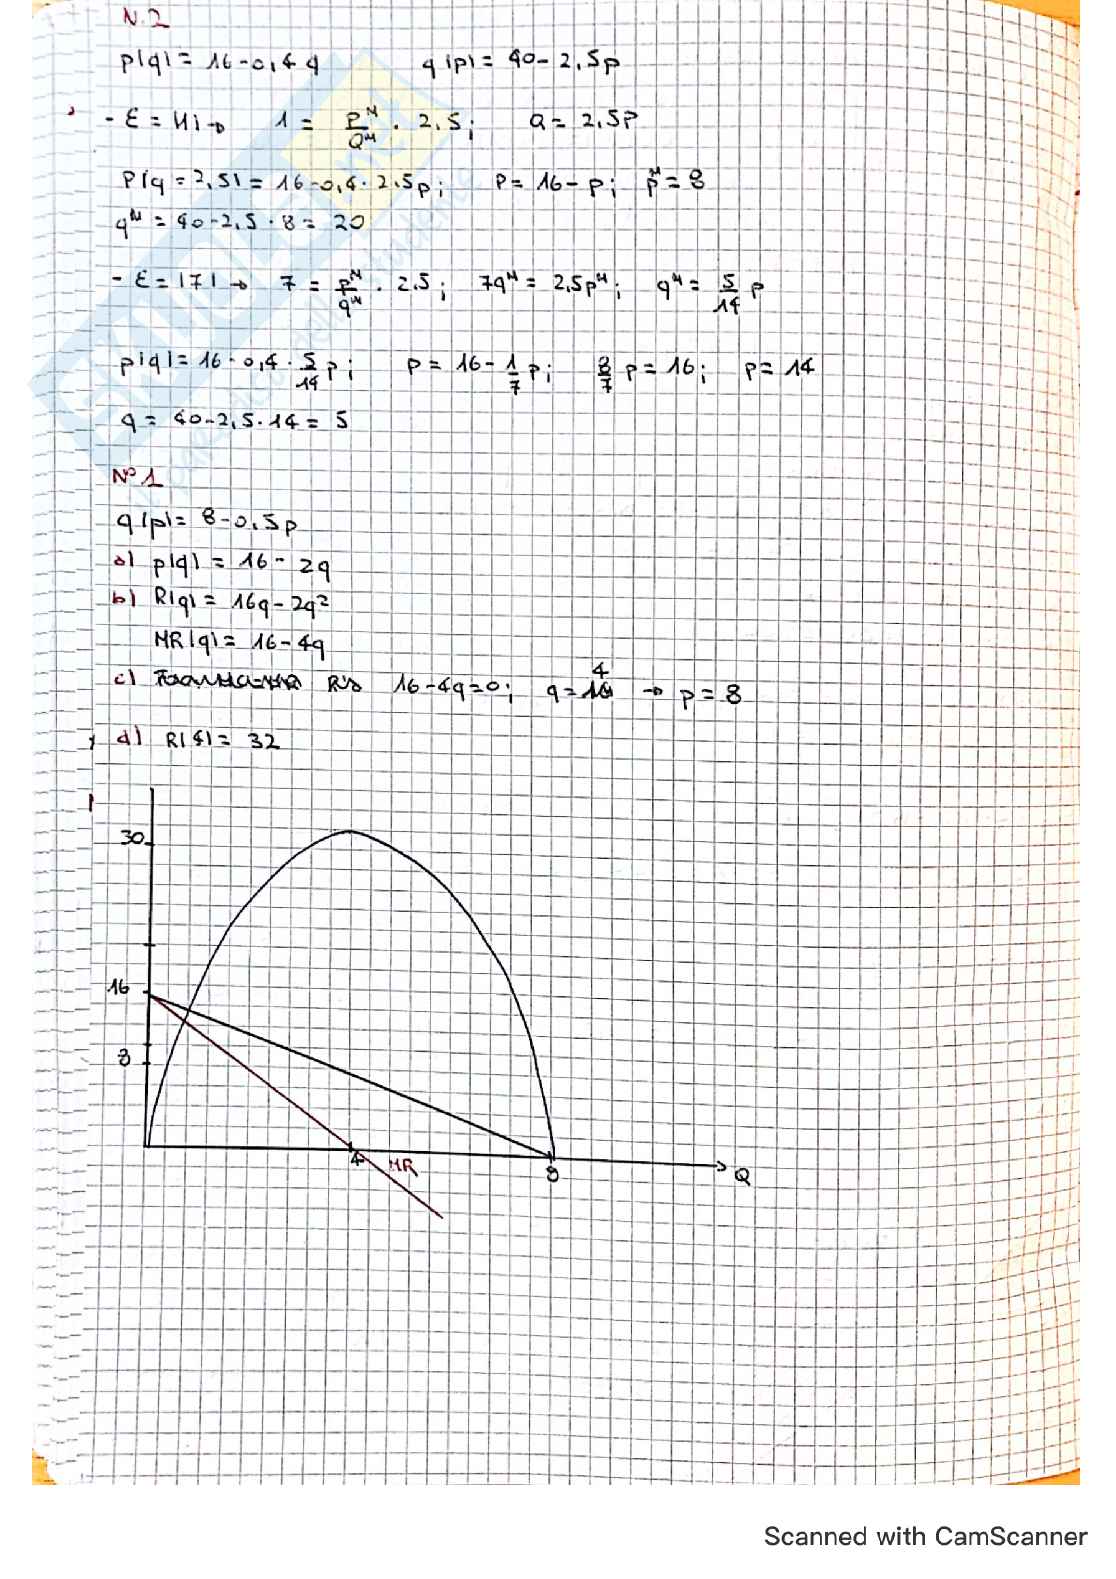 N.2
p(q) = 16-0,4q q(p) = 40-2,5p
- ε = |1| → 1 = pᴹ/Qᴹ · 2,5; Q = 2,5P
P(q = 2,5) = 16-0,4·2,5p; P = 16-p; pᴹ = 8
qᴹ = 40-2,5·8 = 20
- ε = |7| → 7 = pᴹ/qᴹ · 2,5; 7qᴹ = 2,5pᴹ; qᴹ = 5/14 p
p(q) = 16-0,4·5/14 p; p = 16-1/7 p; 8/7 p = 16; p = 14
q = 40-2,5·14 = 5
N°1
q(p) = 8-0,5p
a) p(q) = 16-2q
b) R(q) = 16q-2q²
MR(q) = 16-4q
c) 16-4q=0; q = 4 → p = 8
d) R(4) = 32
30
16
8
4
MR
8
Q
Scanned with CamScanner
SKUOLA.net